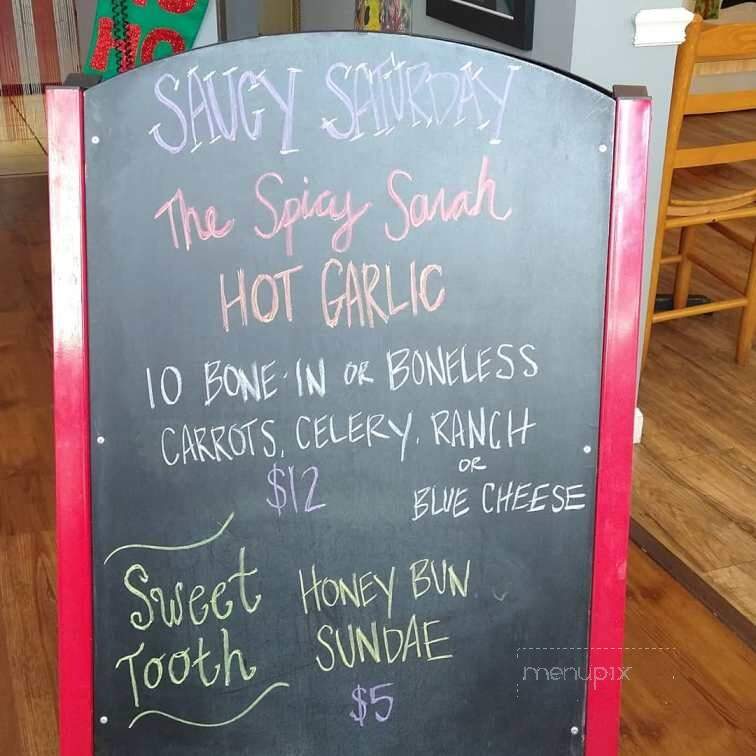 HO
HO
SAUCY SATURDAY
The Spicy Sarah
HOT GARLIC
10 BONE-IN OR BONELESS
CARROTS, CELERY, RANCH
OR
$12 BLUE CHEESE
Sweet Tooth
HONEY BUN
SUNDAE
$5
menupix